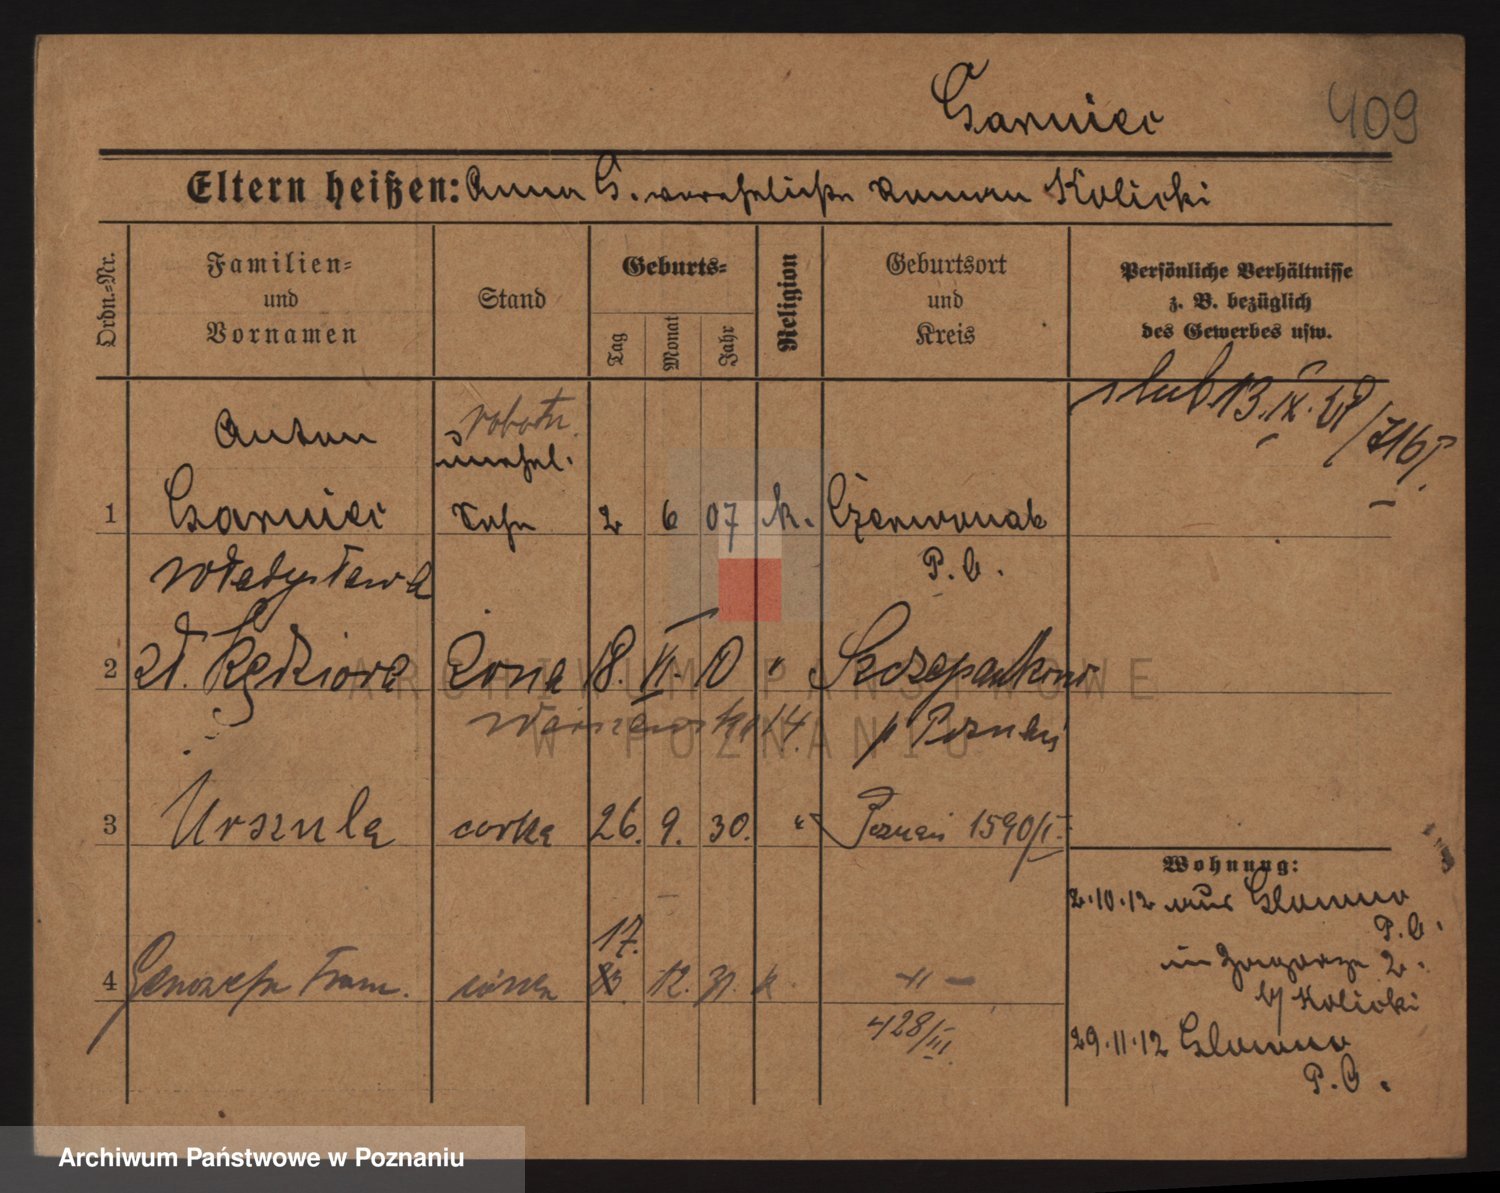 Garniec
409
Eltern heißen: Anna G. verehelichte Roman Kolicki
Ordn.-Nr.
Familien-
und
Vornamen
Stand
Geburts-
Tag
Monat
Jahr
Religion
Geburtsort
und
Kreis
Persönliche Verhältnisse
z. B. bezüglich
des Gewerbes usw.
ślub 13.IX.
robotn.
Anton
unehel.
1 Garniec Sohn 2 6 07 k. Czerwonak
P. O.
Władysława
2 zd. Kędziora żona 18. VI. 10 "
p Poznań
3 Urszula córka 26. 9. 30. " Poznań 1590/I
Wohnung:
2.10.12 aus Glowno
P. O.
17.
4 Genowefa Fran. córka 12. 31. k -"-
in Zagorze 2.
b/ Kolicki
428/III.
29.11.12 Glowno
P. O.
ARCHIWUM PAŃSTWOWE
W POZNANIU
Archiwum Państwowe w Poznaniu